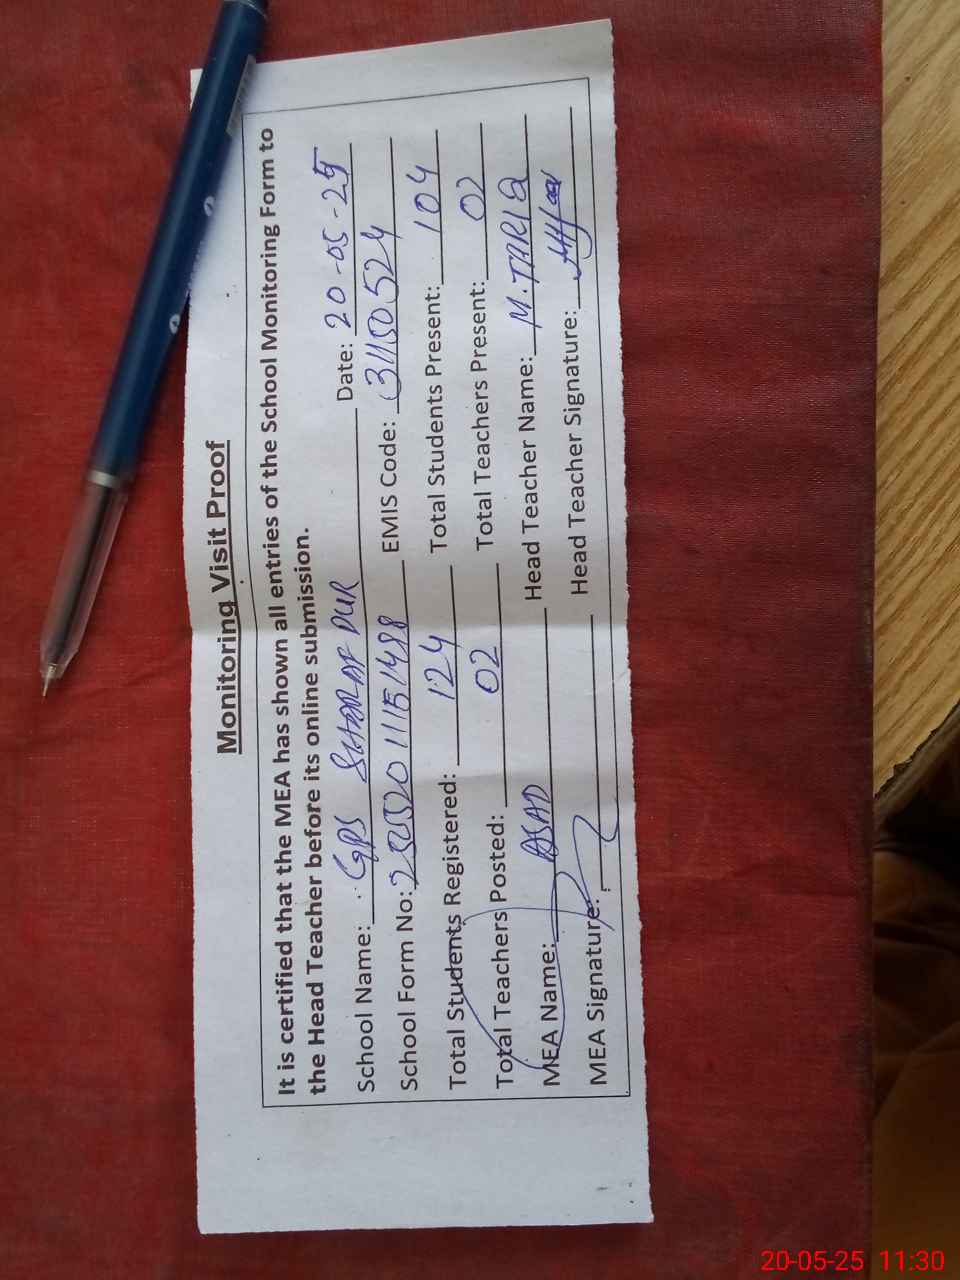 Monitoring Visit Proof
It is certified that the MEA has shown all entries of the School Monitoring Form to
the Head Teacher before its online submission.
School Name: GPS SHARAF PUR Date: 20-05-25
School Form No: EMIS Code: 31150524
Total Students Registered: 124 Total Students Present: 104
Total Teachers Posted: 02 Total Teachers Present: 02
MEA Name: ASAD Head Teacher Name: M. TARIQ
MEA Signature: Head Teacher Signature:
20-05-25 11:30